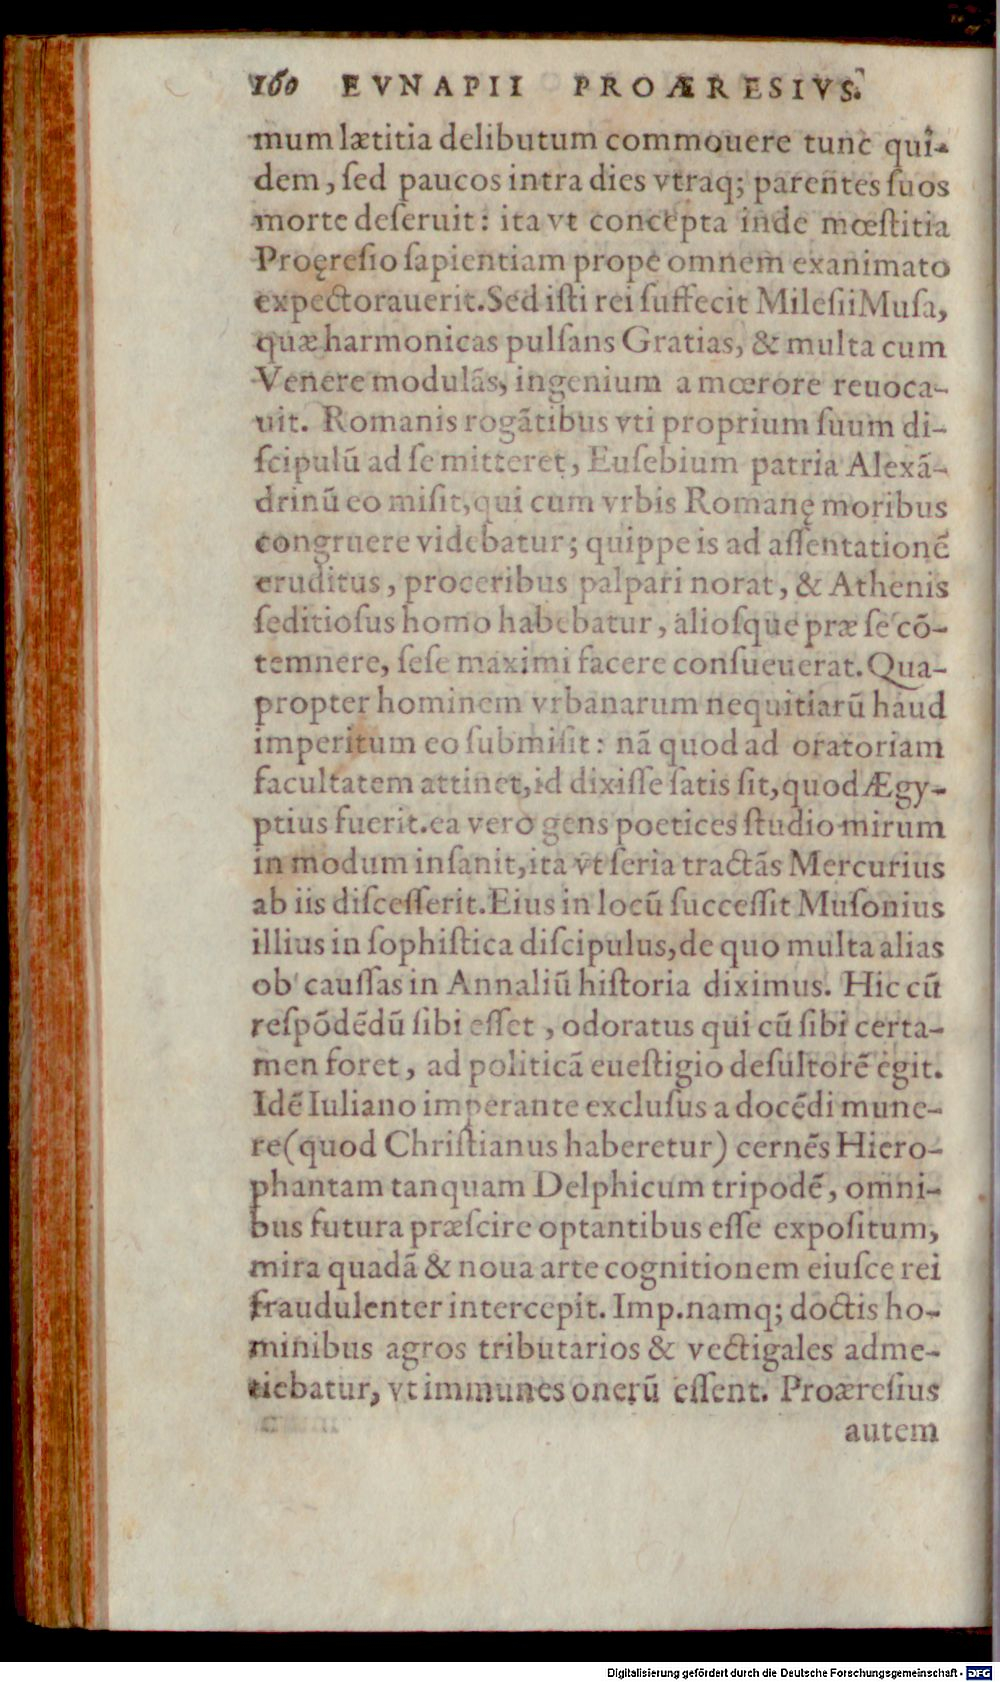 160 EVNAPII PROÆRESIVS.
mum lætitia delibutum commouere tunc qui-
dem, ſed paucos intra dies vtraq; parentes ſuos
morte deſeruit: ita vt concepta inde mœſtitia
Proęreſio ſapientiam prope omnem exanimato
expectorauerit. Sed iſti rei ſuffecit Mileſii Muſa,
quæ harmonicas pulſans Gratias, & multa cum
Venere modulãs, ingenium a mœrore reuoca-
uit. Romanis rogãtibus vti proprium ſuum di-
ſcipulũ ad ſe mitteret, Euſebium patria Alexã-
drinũ eo miſit, qui cum vrbis Romanę moribus
congruere videbatur; quippe is ad aſſentationẽ
eruditus, proceribus palpari norat, & Athenis
ſeditioſus homo habebatur, alioſque præ ſe cõ-
temnere, ſeſe maximi facere conſueuerat. Qua-
propter hominem vrbanarum nequitiarũ haud
imperitum eo ſubmiſit: nã quod ad oratoriam
facultatem attinet, id dixiſſe ſatis ſit, quod Ægy-
ptius fuerit. ea vero gens poetices ſtudio mirum
in modum inſanit, ita vt ſeria tractãs Mercurius
ab iis diſceſſerit. Eius in locũ ſucceſſit Muſonius
illius in ſophiſtica diſcipulus, de quo multa alias
ob cauſſas in Annaliũ hiſtoria diximus. Hic cũ
reſpõdẽdũ ſibi eſſet, odoratus qui cũ ſibi certa-
men foret, ad politicã eueſtigio deſultorẽ egit.
Idẽ Iuliano imperante excluſus a docẽdi mune-
re (quod Chriſtianus haberetur) cernẽs Hiero-
phantam tanquam Delphicum tripodẽ, omni-
bus futura præſcire optantibus eſſe expoſitum,
mira quadã & noua arte cognitionem eiuſce rei
fraudulenter intercepit. Imp. namq; doctis ho-
minibus agros tributarios & vectigales adme-
tiebatur, vt immunes onerũ eſſent. Proæreſius
autem
Digitalisierung gefördert durch die Deutsche Forschungsgemeinschaft - DFG